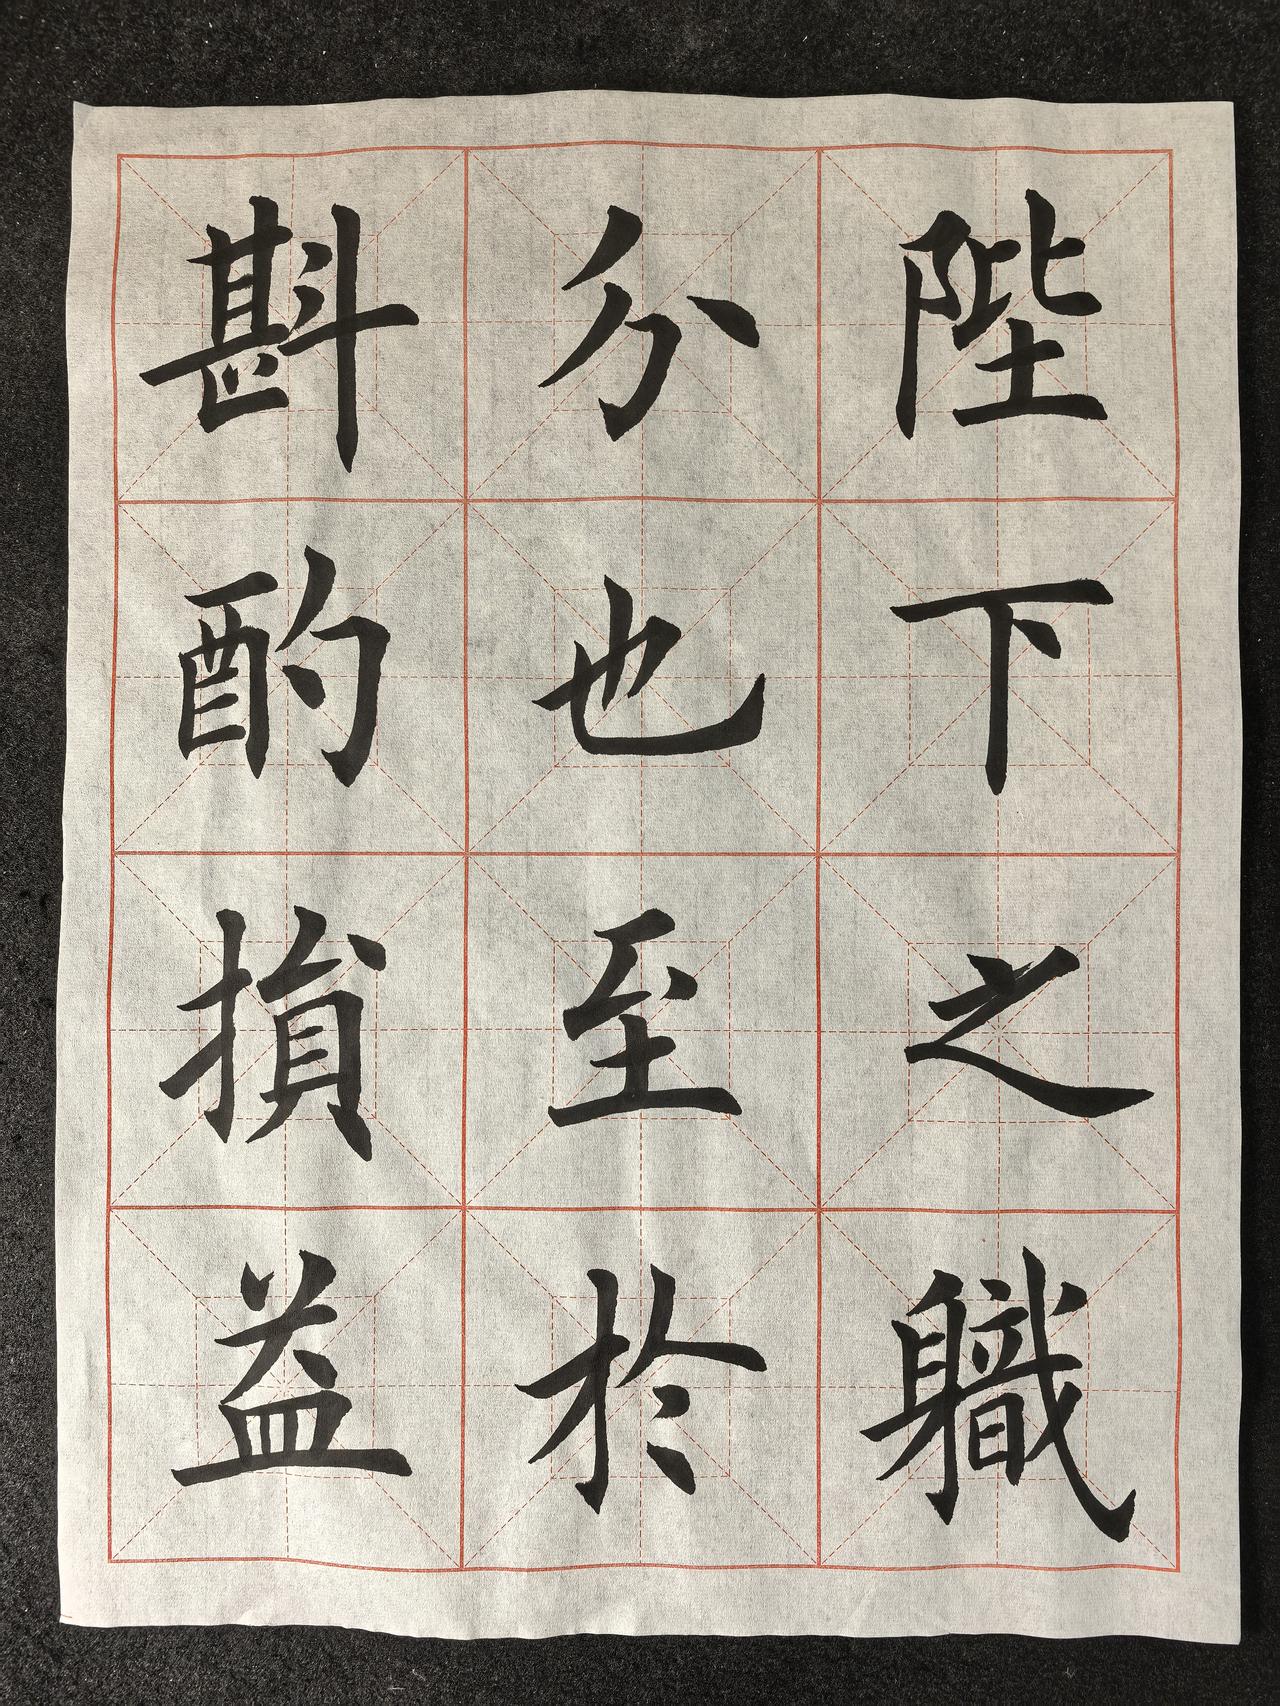 陛下之軄
分也至於
斟酌損益